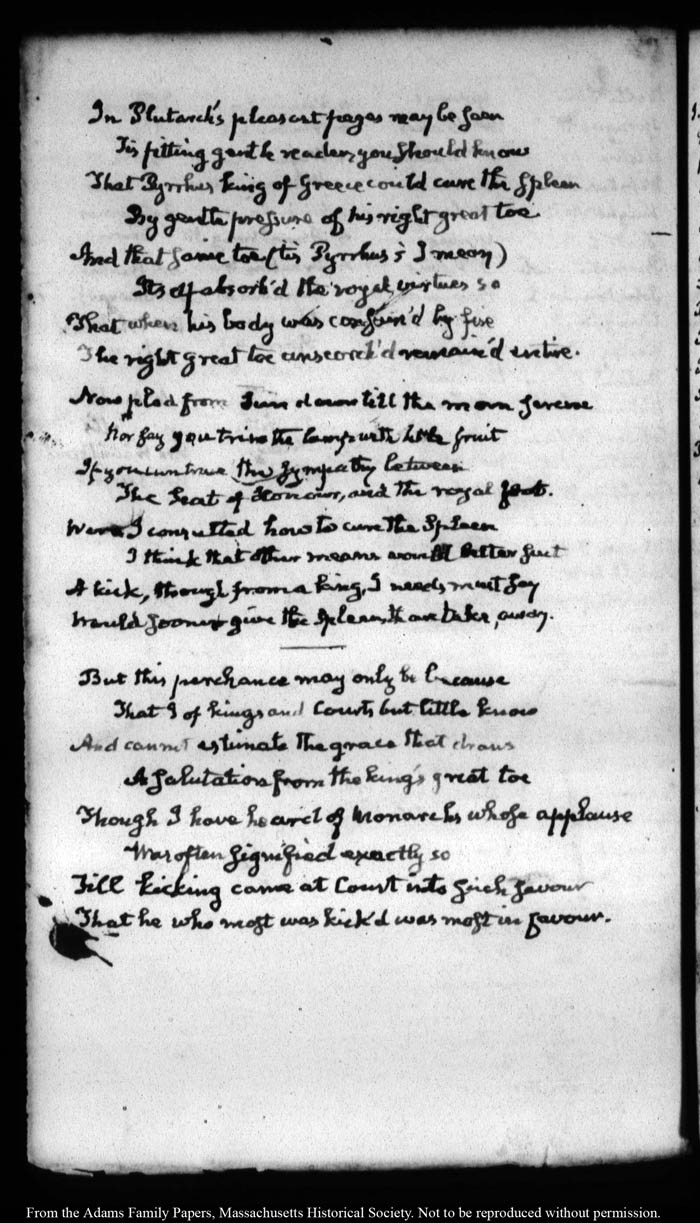 In Plutarch's pleasant pages may be seen
Tis fitting gentle reader, you should know
That Pyrrhus king of Greece could cure the Spleen
By gentle pressure of his right great toe.
And that same toe (tis Pyrrhus's I mean)
Itself absorb'd the royal virtues so
That when his body was consum'd by fire
The right great toe unscorch'd remain'd entire.
Now plod from Sun down till the morn serene
Nor say you trim the lamp with little fruit
If you the Sympathy between
The Seat of Honour, and the royal foot.
Were I consulted how to cure the Spleen
I think that other means would better suit
A kick, though from a king, I needs must say
Would sooner give the Spleen, than take, away.
But this perchance may only be because
That I of kings and Courts but little know
And cannot estimate the grace that draws
A Salutation from the king's great toe
Though I have heard of Monarchs whose applause
Was often signified exactly so
Till kicking came at Court into such favour
That he who most was kick'd was most in favour.
From the Adams Family Papers, Massachusetts Historical Society. Not to be reproduced without permission.